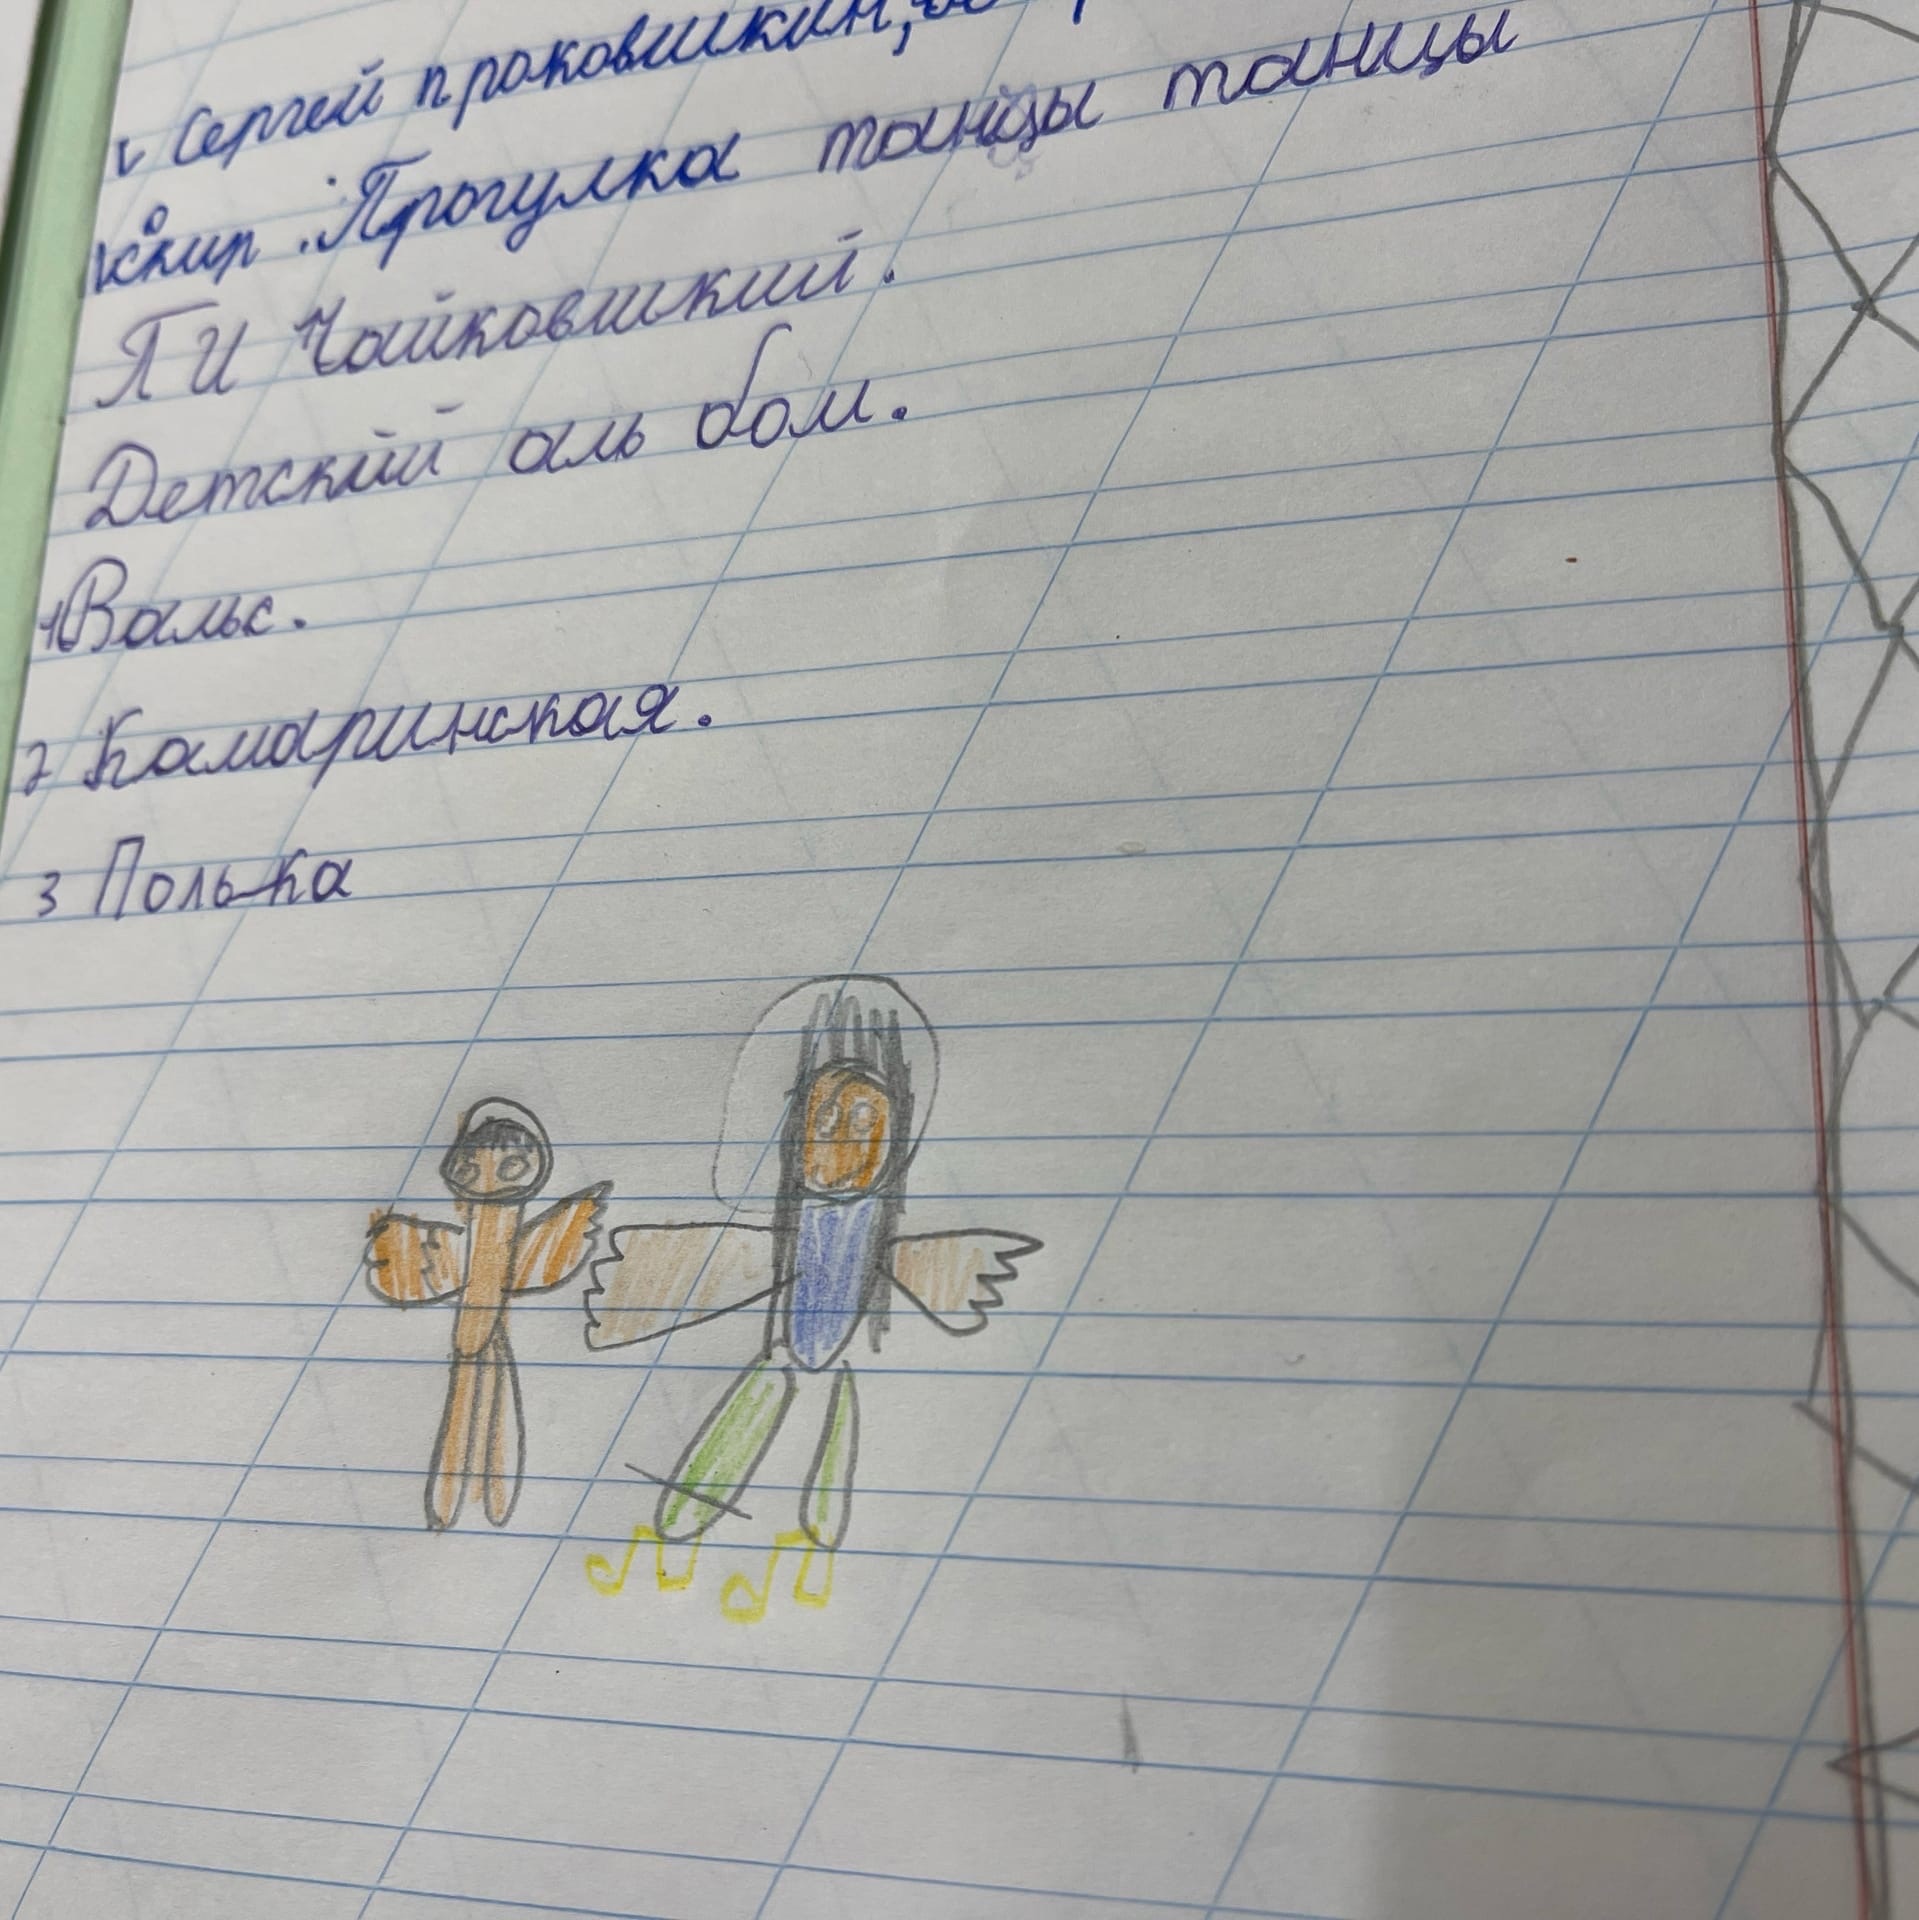 Сергей проковшкин,
. Прогулка танцы танцы
П И Чайковшкий.
Детский аль бом.
1 Вальс.
2 Камаринская.
3 Полька